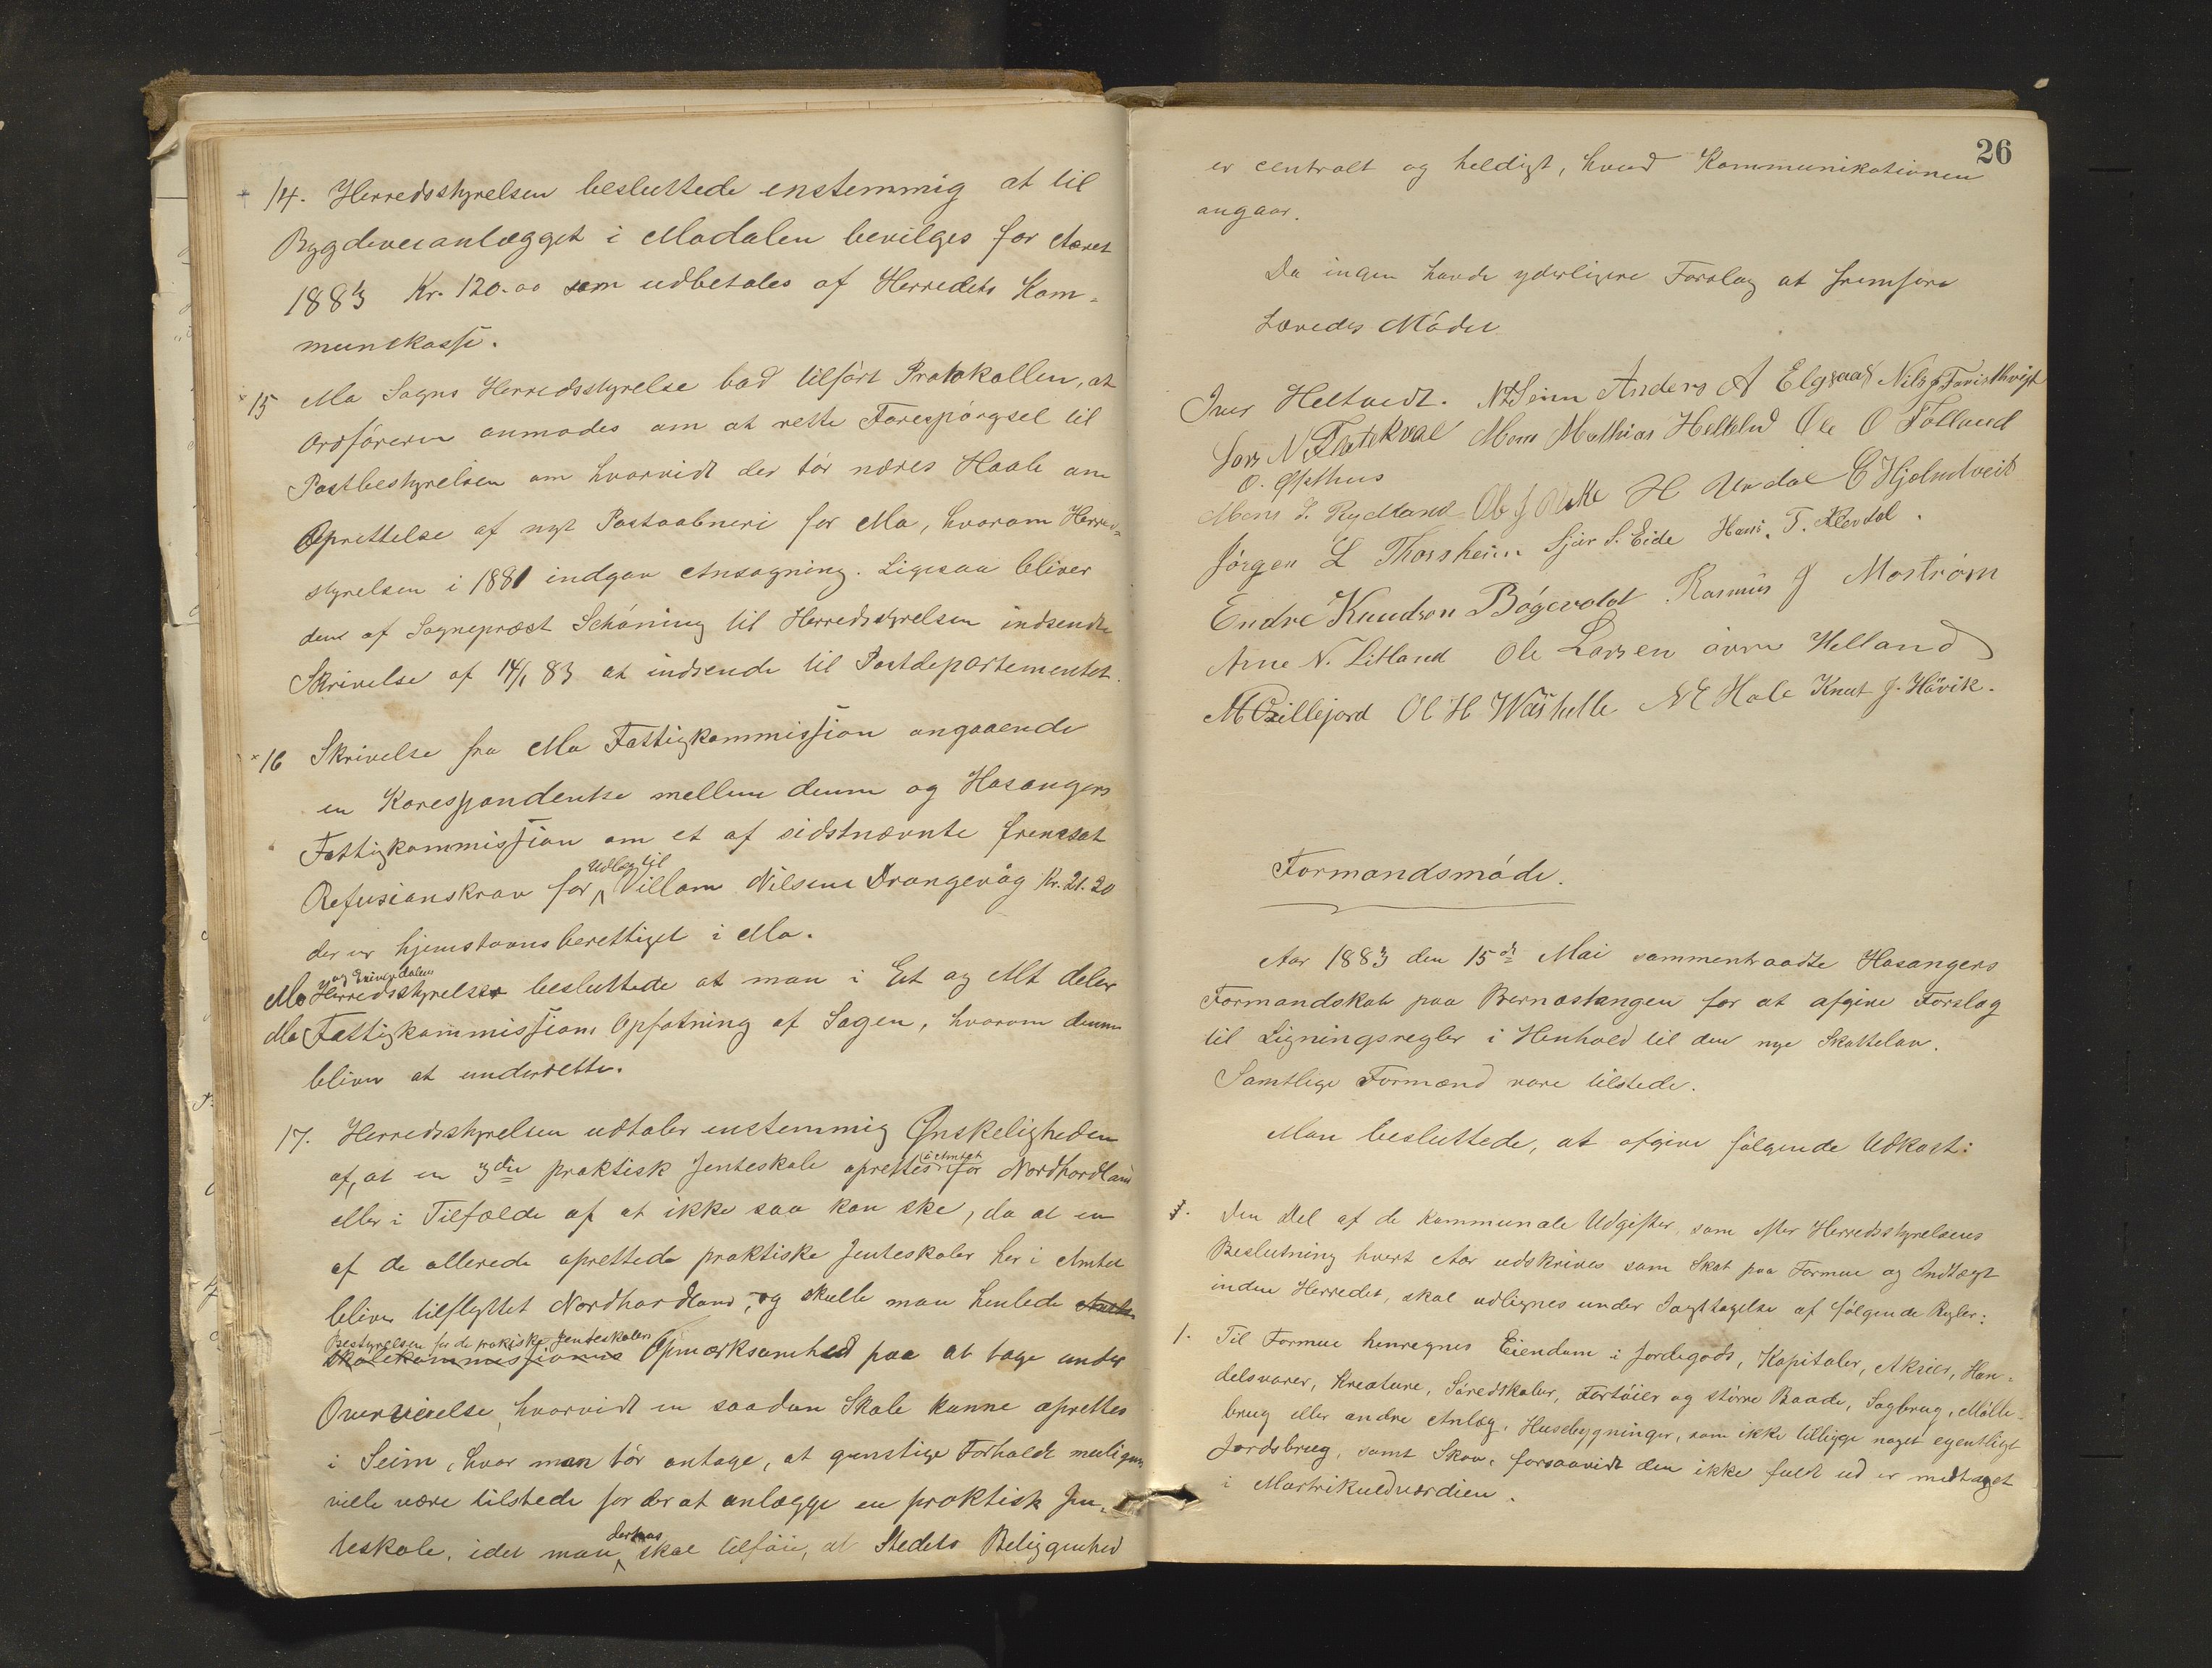 14. Herredsstyrelsen besluttede enstemmig at til
Bygdeveianlægget i Modalen bevilges for Aaret
1883 Kr. 120.00 som udbetales af Herredets Kom-
munekasse.
15 Mo Sogns Herredsstyrelse bad tilført Protokollen, at
Ordføreren anmodes om at rette Forespørgsel til
Postbestyrelsen om hvorvidt der tør næres Haab om
Oprettelse af nyt Postaabneri for Mo, hvorom Herreds-
styrelsen i 1881 indgav Ansøgning. Ligesaa bliver
den af Sognepræst Schöning til Herredsstyrelsen indsendte
Skrivelse af 14/1 83 at indsende til Postdepartementet.
16 Skrivelse fra Mo Fattigkommission angaaende
en Korespondentse mellem denne og Hosangers
Fattigkommission om et af sidstnævnte fremsat
Refusionskrav for Udlæg til Villam Nilsens Drangevåg Kr. 21.20
der er hjemstavnsberettiget i Mo.
Mo og Exingedalens Herredsstyrelser besluttede at man i Et og Alt deler
Mo Fattigkommissions Opfatning af Sagen, hvorom denne
bliver at underrette.
17. Herredsstyrelsen udtaler enstemmig Ønskeligheden
af, at en 3die praktisk Jenteskole oprettes i Amtet for Nordhordland
eller i Tilfælde af at ikke saa kan ske, da at en
af de allerede oprettede praktiske Jenteskoler her i Amtet
bliver tilflyttet Nordhordland, og skulle man henlede
Bestyrelsen for de praktiske Jenteskolers
skolekommissionens Opmærksomhed paa at tage under
Overveielse, hvorvidt en saadan Skole kunne oprettes
i Seim, hvor man tør antage, at gunstige Forholde muligens
ville være tilstede for der at anlægge en praktisk Jen-
teskole, idet man derhos skal tilføie, at Stedets Beliggenhed
26
er centralt og heldigt, hvad Kommunikationen
angaar.
Da ingen havde yderligere Forslag at fremføre
hævedes Mødet
Iver Heltvedt. N Seim Anders A Elgsaas Nils
Lars N. Mons Mathias Helleld Ole O Folland
O. Opthus
Mons I. Rydland Ole J H Undal C Hjelmtveit
Jørgen L Thorsheim Sjur S. Eide Hans. T.
Endre Knudsen Bøgevoldt Rasmus J Mostrøm
Arne N. Litland Ole Larsen øvre Helland
M Ol H N E Hole Knut J. Håvik.
Formandsmøde.
Aar 1883 den 15de Mai sammentraadte Hosangers
Formandskab paa Bernastangen for at afgive Forslag
til Ligningsregler i Henhold til den nye Skattelov.
Samtlige Formænd vare tilstede.
Man besluttede, at afgive følgende Udkast:
Den Del af de kommunale Udgifter, som efter Herredsstyrelsens
Beslutning hvert Aar udskrives som Skat paa Formue og Indtægt
inden Herredet, skal udlignes under Iagttagelse af følgende Regler:
1. Til Formue henregnes Eiendom i Jordegods, Kapitaler, Aksier, Han-
delsvarer, Kreature, Søredskaber, Fartøier og større Baade, Sagbrug, Mølle-
brug eller andre Anlæg, Husebygninger, som ikke tilligge noget egentligt
Jordsbrug, samt Skov, forsaavidt den ikke fuldt ud er medtaget
i Martrikulværdien.